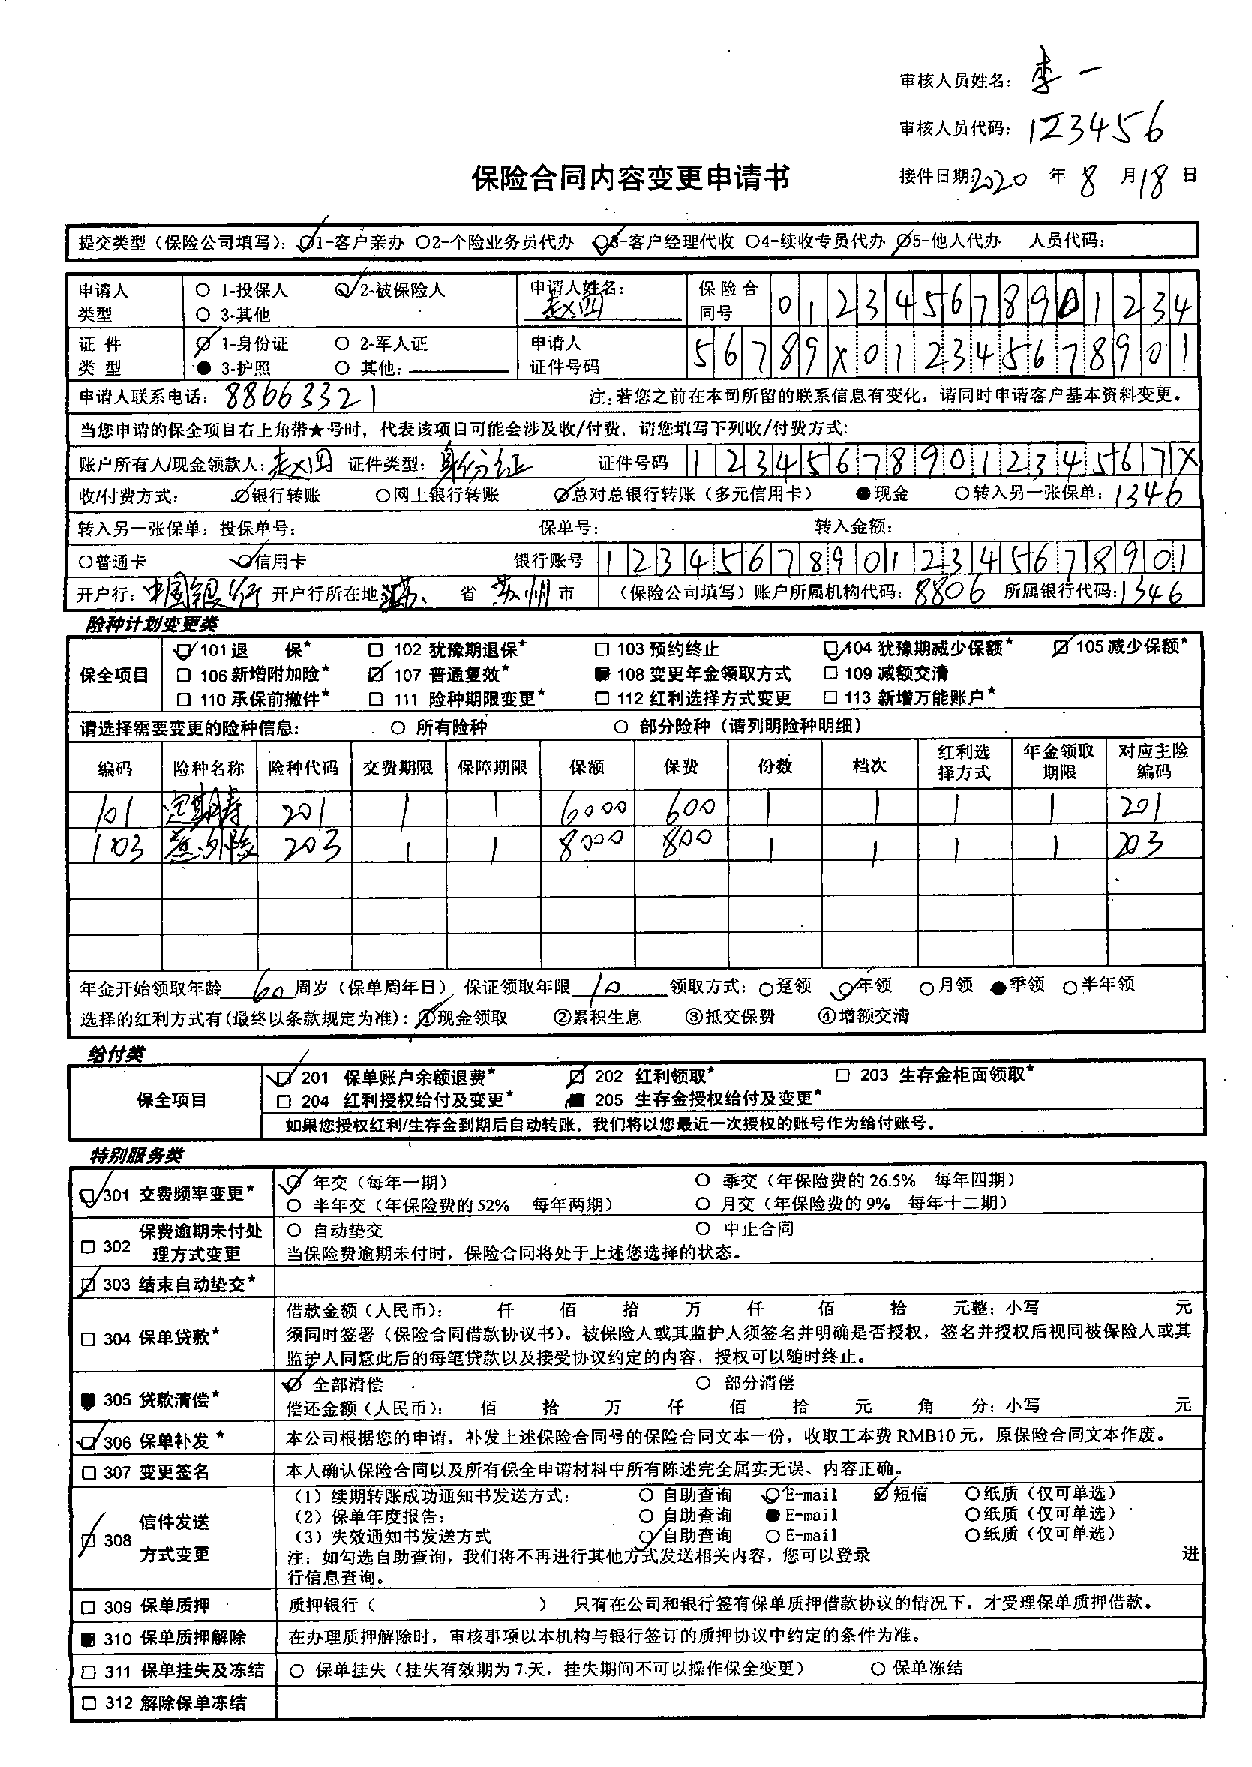 审核人员姓名：李一
审核人员代码：123456
保险合同内容变更申请书
接件日期：2020 年 8 月 18 日
提交类型（保险公司填写）：☑1-客户亲办 ○2-个险业务员代办 ☑3-客户经理代收 ○4-续收专员代办 ☑5-他人代办 人员代码：
申请人类型 ○ 1-投保人 ☑2-被保险人 ○ 3-其他 申请人姓名：赵四 保险合同号 012345678901234
证件类型 ☑ 1-身份证 ○ 2-军人证 ● 3-护照 ○ 其他： 申请人证件号码 56789X012345678901
申请人联系电话：88663321 注：若您之前在本司所留的联系信息有变化，请同时申请客户基本资料变更。
当您申请的保全项目右上角带★号时，代表该项目可能会涉及收/付费，请您填写下列收/付费方式：
账户所有人/现金领款人：赵四 证件类型：身份证 证件号码 12345678901234567X
收/付费方式： ☑银行转账 ○网上银行转账 ☑总对总银行转账（多元信用卡） ●现金 ○转入另一张保单：1346
转入另一张保单：投保单号： 保单号： 转入金额：
○普通卡 ☑信用卡 银行账号 123456789012345678901
开户行：中国银行 开户行所在地 江苏 省 苏州 市 （保险公司填写）账户所属机构代码：8806 所属银行代码：1346
险种计划变更类
保全项目 ☑ 101 退 保* □ 102 犹豫期退保* □ 103 预约终止 ☑ 104 犹豫期减少保额* ☑ 105 减少保额*
□ 106 新增附加险* ☑ 107 普通复效* ■ 108 变更年金领取方式 □ 109 减额交清
□ 110 承保前撤件* □ 111 险种期限变更* □ 112 红利选择方式变更 □ 113 新增万能账户*
请选择需要变更的险种信息： ○ 所有险种 ○ 部分险种（请列明险种明细）
编码 险种名称 险种代码 交费期限 保障期限 保额 保费 份数 档次 红利选择方式 年金领取期限 对应主险编码
101 定期寿 201 1 1 6000 600 1 1 1 1 201
103 意外险 203 1 1 8000 800 1 1 1 1 203
年金开始领取年龄 60 周岁（保单周年日），保证领取年限 10 领取方式：○趸领 ☑年领 ○月领 ●季领 ○半年领
选择的红利方式有(最终以条款规定为准)：①现金领取 ②累积生息 ③抵交保费 ④增额交清
给付类
保全项目 ☑ 201 保单账户余额退费* ☑ 202 红利领取* □ 203 生存金柜面领取*
□ 204 红利授权给付及变更* ■ 205 生存金授权给付及变更*
如果您授权红利/生存金到期后自动转账，我们将以您最近一次授权的账号作为给付账号。
特别服务类
☑ 301 交费频率变更* ☑ 年交（每年一期） ○ 季交（年保险费的26.5% 每年四期）
○ 半年交（年保险费的52% 每年两期） ○ 月交（年保险费的9% 每年十二期）
□ 302 保费逾期未付处理方式变更 ○ 自动垫交 ○ 中止合同
当保险费逾期未付时，保险合同将处于上述您选择的状态。
☑ 303 结束自动垫交*
□ 304 保单贷款* 借款金额（人民币）： 仟 佰 拾 万 仟 佰 拾 元整；小写 元
须同时签署（保险合同借款协议书）。被保险人或其监护人须签名并明确是否授权，签名并授权后视同被保险人或其
监护人同意此后的每笔贷款以及接受协议约定的内容，授权可以随时终止。
■ 305 贷款清偿* ☑ 全部清偿 ○ 部分清偿
偿还金额（人民币）： 佰 拾 万 仟 佰 拾 元 角 分；小写 元
☑ 306 保单补发* 本公司根据您的申请，补发上述保险合同号的保险合同文本一份，收取工本费 RMB10 元，原保险合同文本作废。
□ 307 变更签名 本人确认保险合同以及所有保全申请材料中所有陈述完全属实无误、内容正确。
☑ 308 信件发送方式变更 （1）续期转账成功通知书发送方式： ○ 自助查询 ☑E-mail ☑短信 ○纸质（仅可单选）
（2）保单年度报告： ○ 自助查询 ● E-mail ○纸质（仅可单选）
（3）失效通知书发送方式 ☑自助查询 ○ E-mail ○纸质（仅可单选）
注：如勾选自助查询，我们将不再进行其他方式发送相关内容，您可以登录 进
行信息查询。
□ 309 保单质押 质押银行（ ） 只有在公司和银行签有保单质押借款协议的情况下，才受理保单质押借款。
■ 310 保单质押解除 在办理质押解除时，审核事项以本机构与银行签订的质押协议中约定的条件为准。
□ 311 保单挂失及冻结 ○ 保单挂失（挂失有效期为7天，挂失期间不可以操作保全变更） ○ 保单冻结
□ 312 解除保单冻结